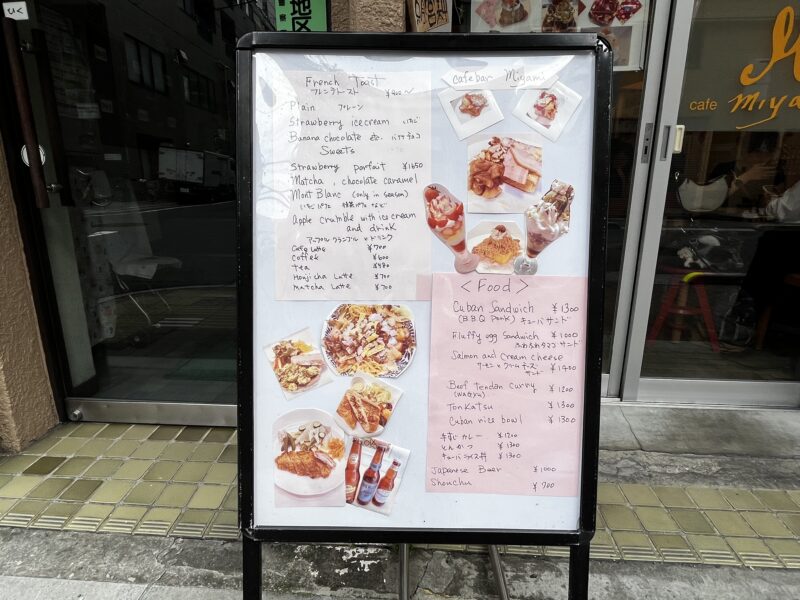 ひく
地区
French Toast
フレンチトースト ¥900〜
Plain プレーン
Strawberry icecream いちご
Banana chocolate etc. バナナチョコ
Sweets
Strawberry parfait ¥1650
Matcha, chocolate caramel
Mont Blanc (only in season)
いちごパフェ 抹茶パフェ など
Apple crumble with ice cream
and drink
アップルクランブル + ドリンク
Cafe Latte ¥700
Coffee ¥600
tea
Houji cha Latte ¥700
matcha Latte ¥700
cafebar Miyami
<Food>
Cuban Sandwich ¥1300
(BBQ Pork) キューバサンド
Fluffy egg sandwich ¥1000
ふわふわタマゴサンド
Salmon and cream cheese
サーモンとクリームチーズ ¥1400
サンド
Beef tendon curry ¥1200
(wagyu)
Tonkatsu ¥1300
Cuban rice bowl ¥1300
牛すじカレー ¥1200
とんかつ ¥1300
キューバライス丼 ¥1300
Japanese Beer ¥1000
Shouchu ¥700
cafe